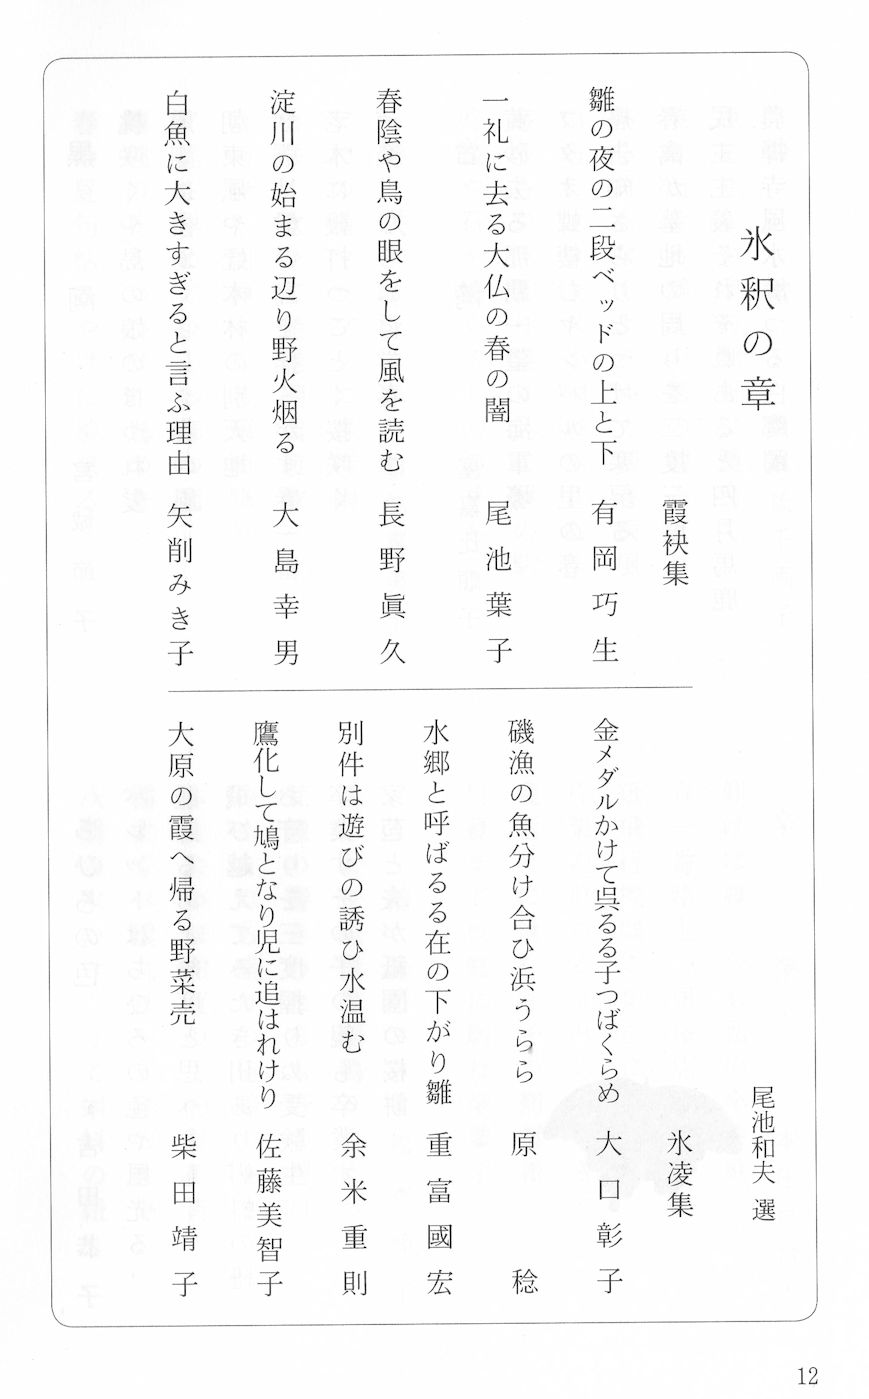 氷釈の章
尾池和夫 選
霞袂集
雛の夜の二段ベッドの上と下 有岡巧生
一礼に去る大仏の春の闇 尾池葉子
春陰や鳥の眼をして風を読む 長野眞久
淀川の始まる辺り野火烟る 大島幸男
白魚に大きすぎると言ふ理由 矢削みき子
氷凌集
金メダルかけて呉るる子つばくらめ 大口彰子
磯漁の魚分け合ひ浜うらら 原 稔
水郷と呼ばるる在の下がり雛 重富國宏
別件は遊びの誘ひ水温む 余米重則
鷹化して鳩となり児に追はれけり 佐藤美智子
大原の霞へ帰る野菜売 柴田靖子
12